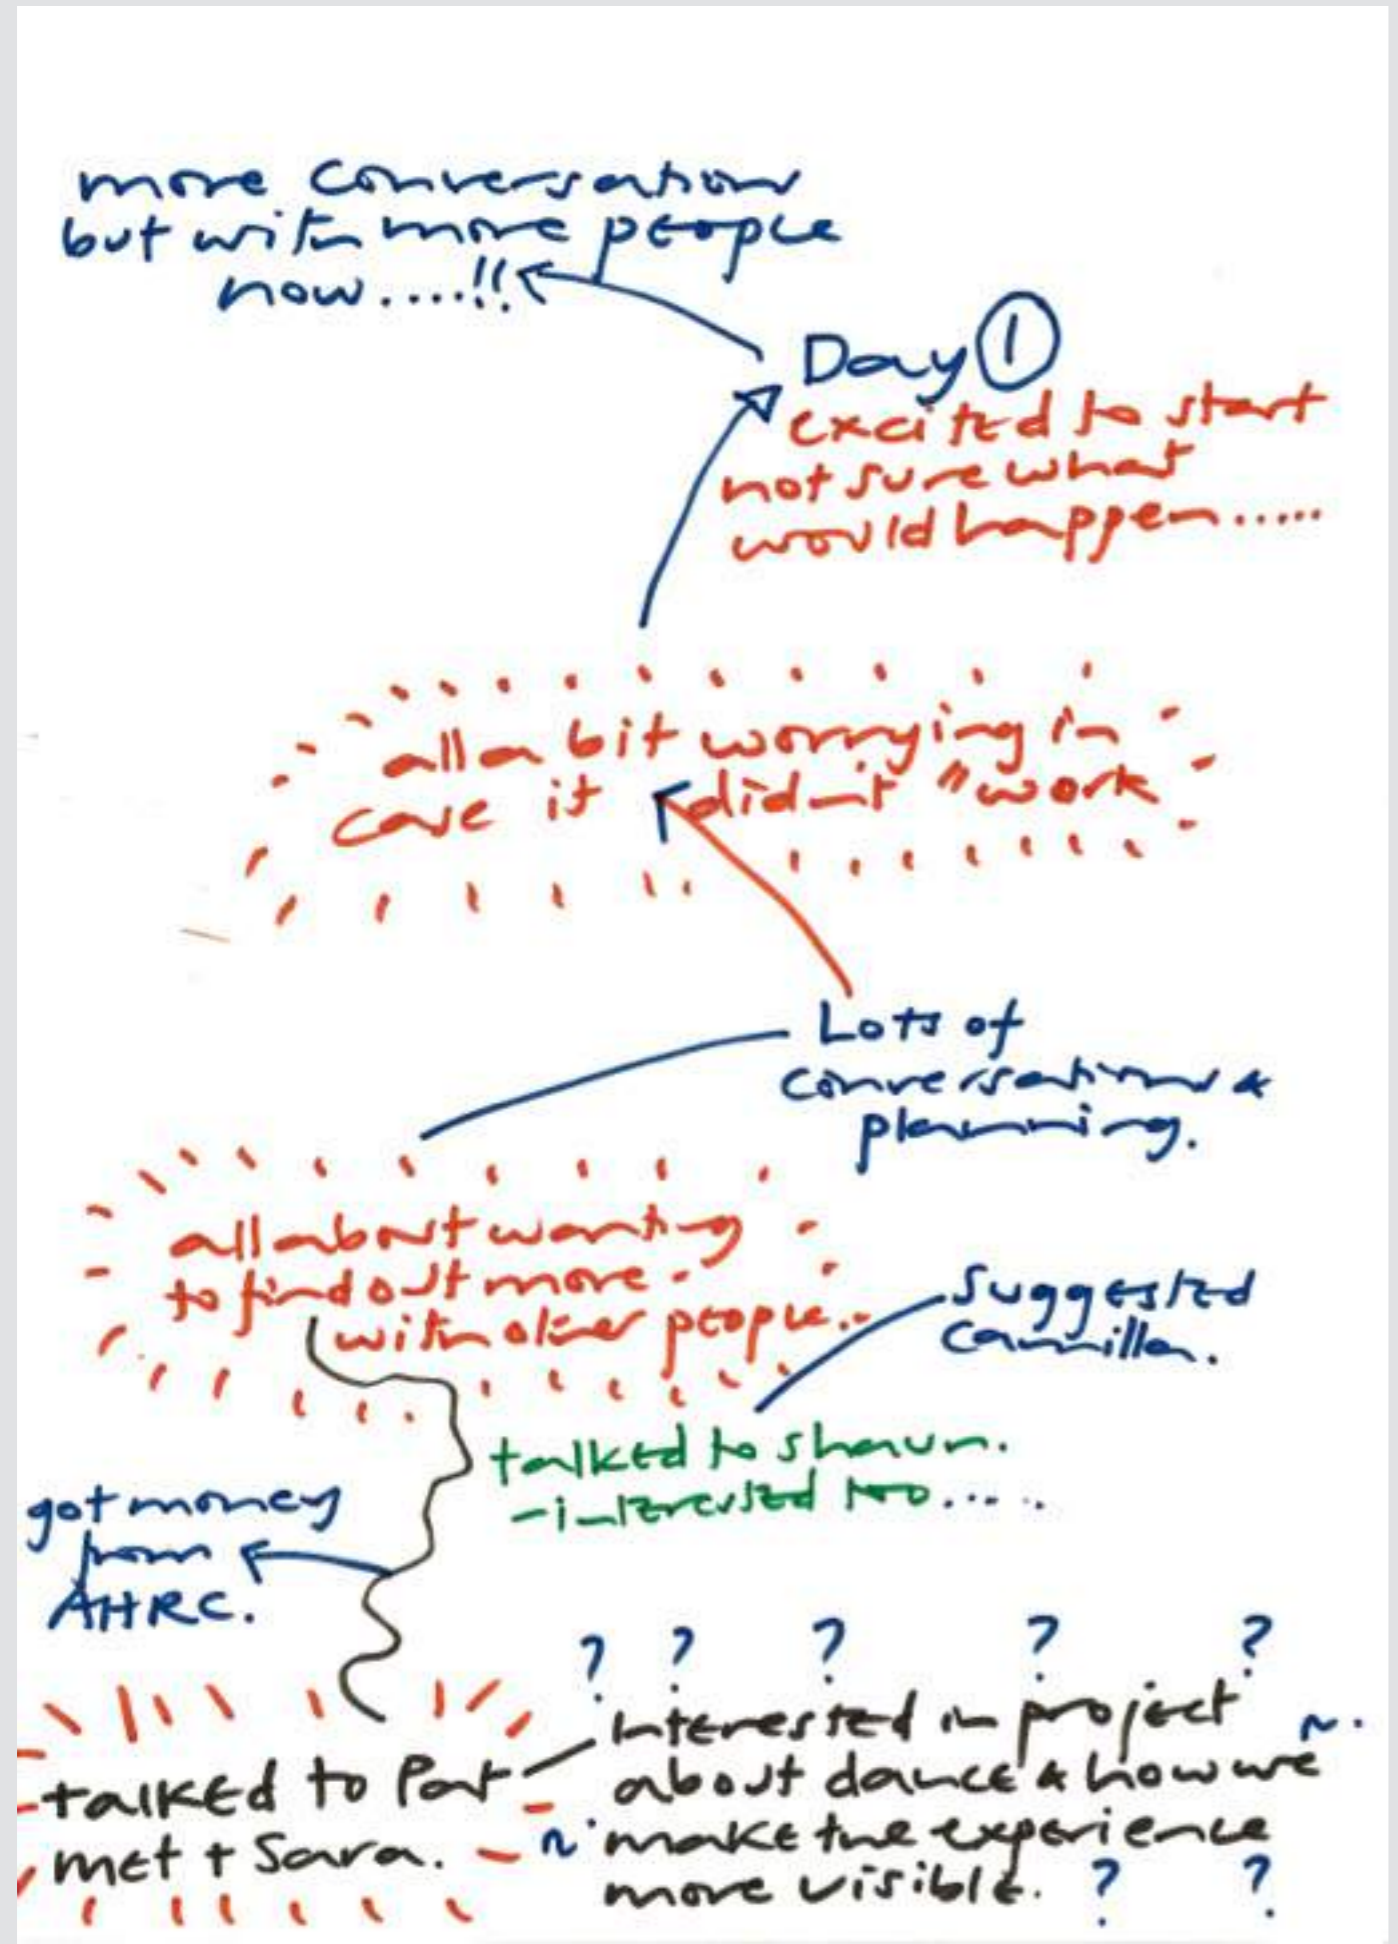 more conversations
but with more people
now....!!
Day 1
excited to start
not sure what
would happen.....
all a bit worrying in
case it didn't "work
Lots of
conversations &
planning.
all about wanting
to find out more -
with other people..
Suggested
Camilla.
talked to Shaun.
- interested too.....
got money
from
AHRC.
? ? ? ? ?
Interested in project
about dance & how we
make the experience
more visible. ? ?
talked to Pat
met + Sara.